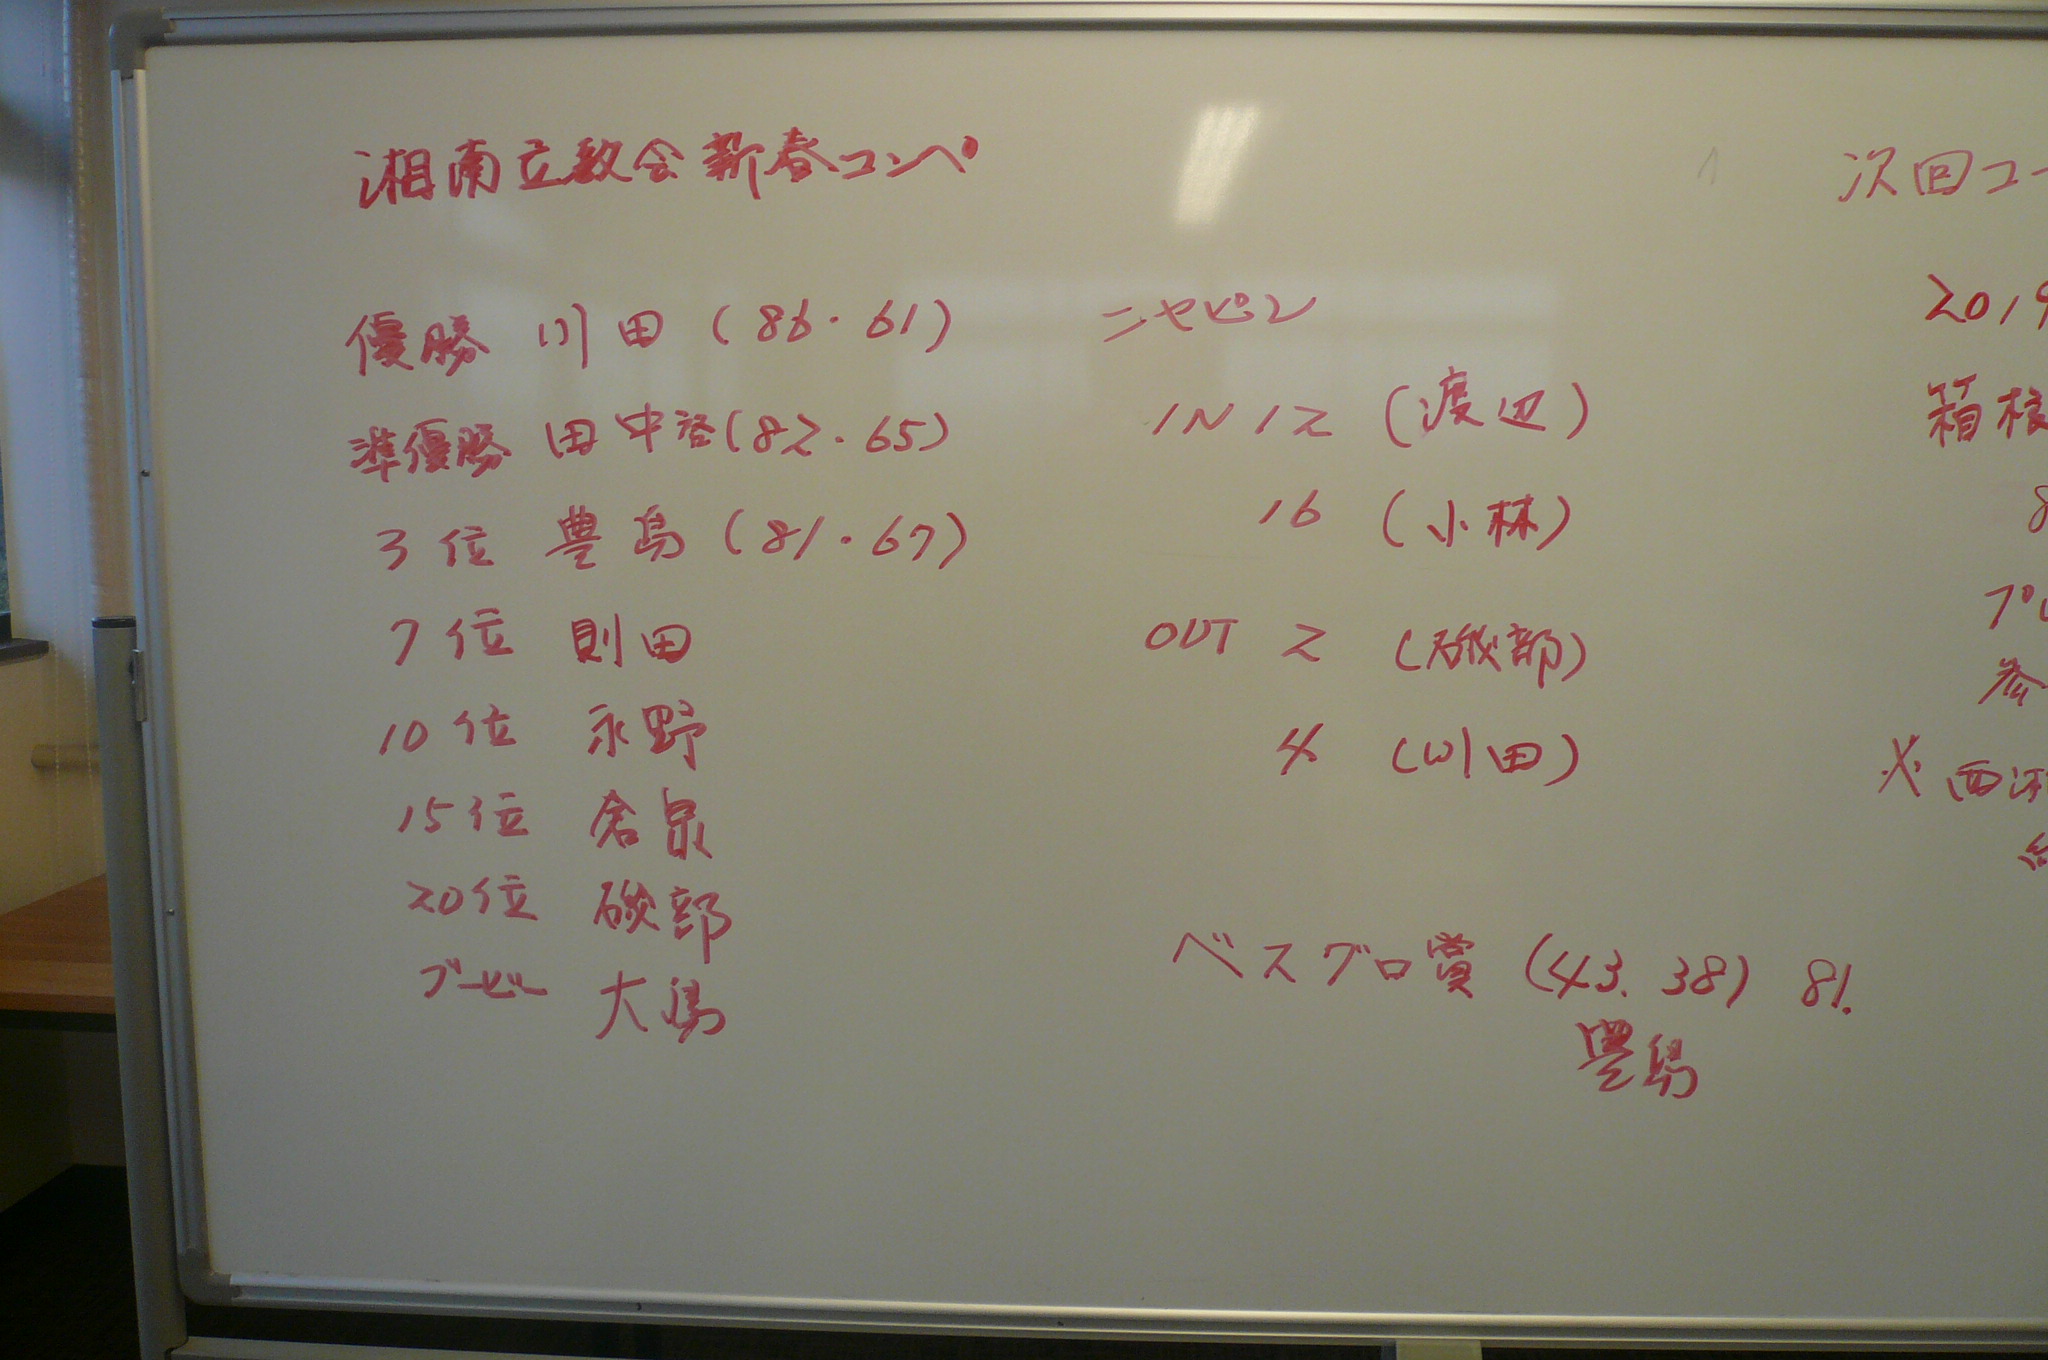 湘南立教会新春コンペ
優勝 川田 (86・61)
準優勝 田中啓(82・65)
3位 豊島 (81・67)
7位 則田
10位 永野
15位 倉泉
20位 磯部
ブービー 大島
ニヤピン
IN 12 (渡辺)
16 (小林)
OUT 2 (磯部)
4 (川田)
ベスグロ賞 (43. 38) 81.
豊島
次回コー
2019
箱根
8
プレ
参
※西湘